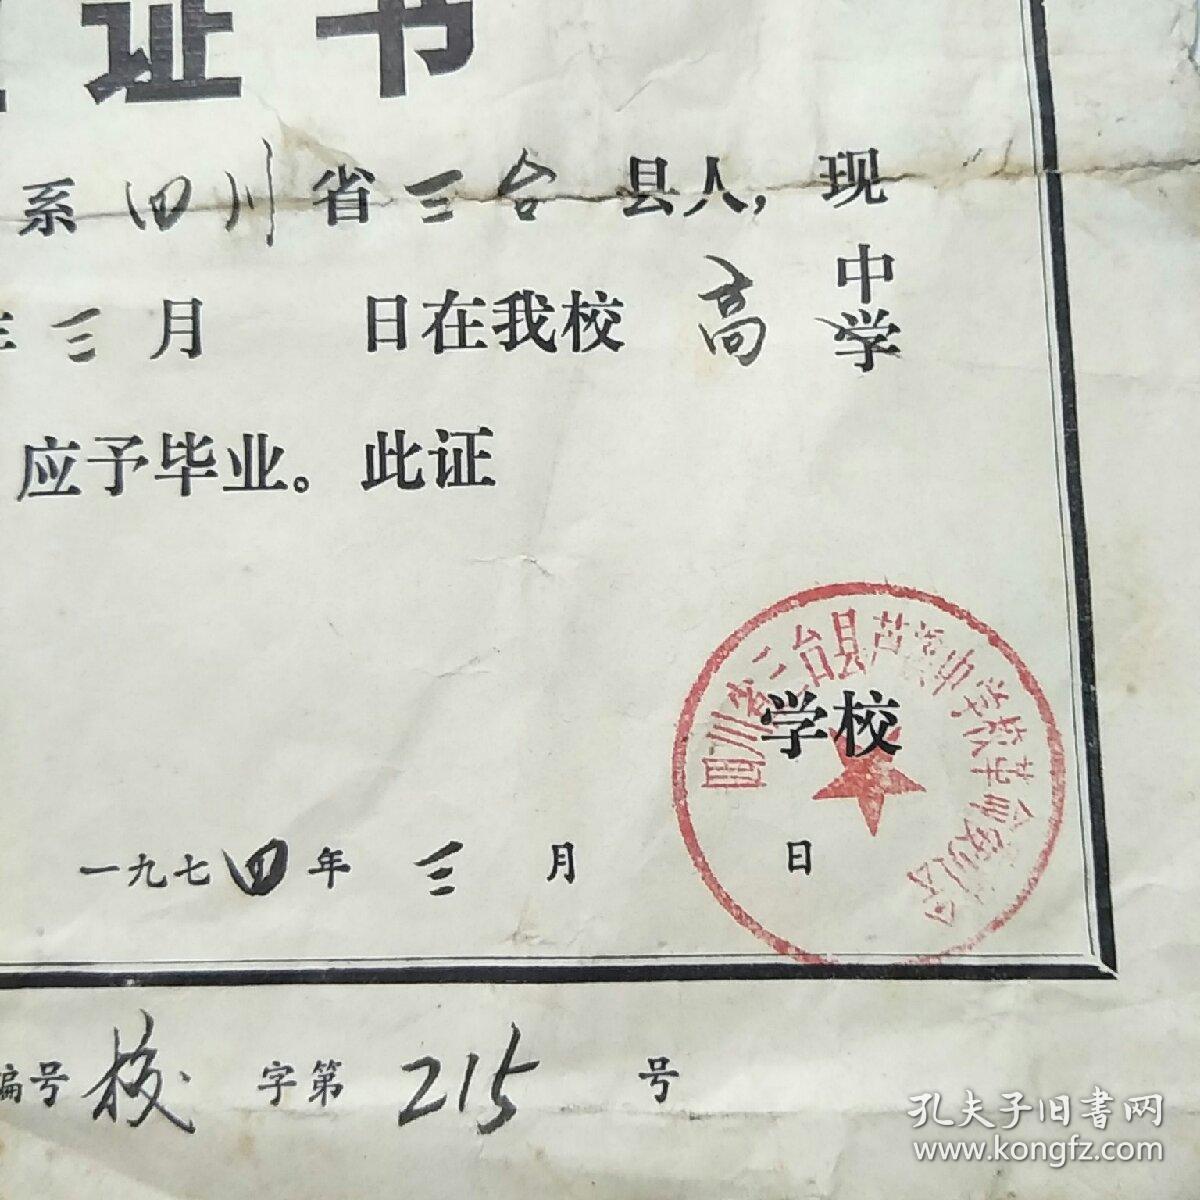 证书
系四川省三台县人，现
年三月 日在我校高中学
应予毕业。此证
四川省三台县芦溪中学校革命委员会
学校
一九七四年三月 日
编号校字第215号
孔夫子旧书网
www.kongfz.com